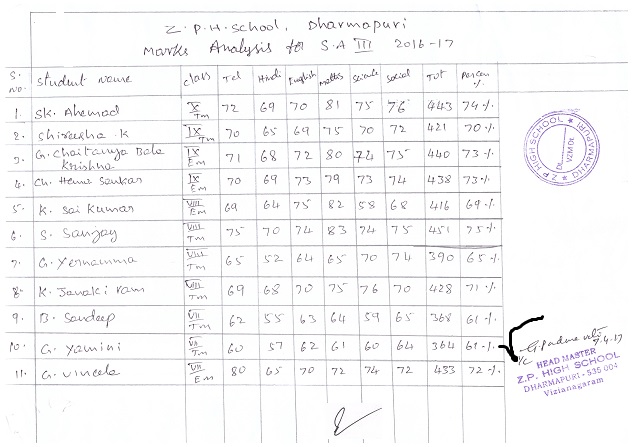 Z.P.H. School, Dharmapuri
Marks Analysis for S.A III 2016-17
S. No. Student Name class Tel Hindi English Maths Science Social Tot Percen %
1. SK. Ahemad X Tm 72 69 70 81 75 76 443 74%
2. Shirasha . K IX Tm 70 65 69 75 70 72 421 70%
3. G. Chaitanya Bala Krishna IX Em 71 68 72 80 74 75 440 73%
4. Ch. Hema Sankar IX Em 70 69 73 79 73 74 438 73%
5. K. Sai Kumar VIII Em 69 64 75 82 58 68 416 69%
6. S. Sanjay VIII Tm 75 70 74 83 74 75 451 75%
7. G. Yernamma VIII Tm 65 52 64 65 70 74 390 65%
8. K. Janaki ram VIII Tm 69 68 70 75 76 70 428 71%
9. B. Sandeep VII Tm 62 55 63 64 59 65 368 61%
10. G. Yamini VII Tm 60 57 62 61 60 64 364 61%
11. G. Vineela VII Em 80 65 70 72 74 72 433 72%
Z.P. HIGH SCHOOL
DHARMAPURI
VZM Dt
7.4.17
I/c HEAD MASTER
Z.P. HIGH SCHOOL
DHARMAPURI - 535 004
Vizianagaram